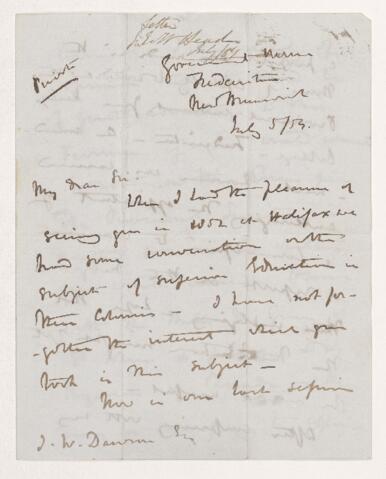 Letter
Sir E W Head
July 1854
Private
Government House
Fredericton
New Brunswick
July 5/54.
My dear Sir
When I had the pleasure of
seeing you in 1852 at Halifax we
had some conversation on the
subject of superior Education in
these Colonies – I have not for-
-gotten the interest which you
took in this subject –
Now in our last session
J. W. Dawson Esq